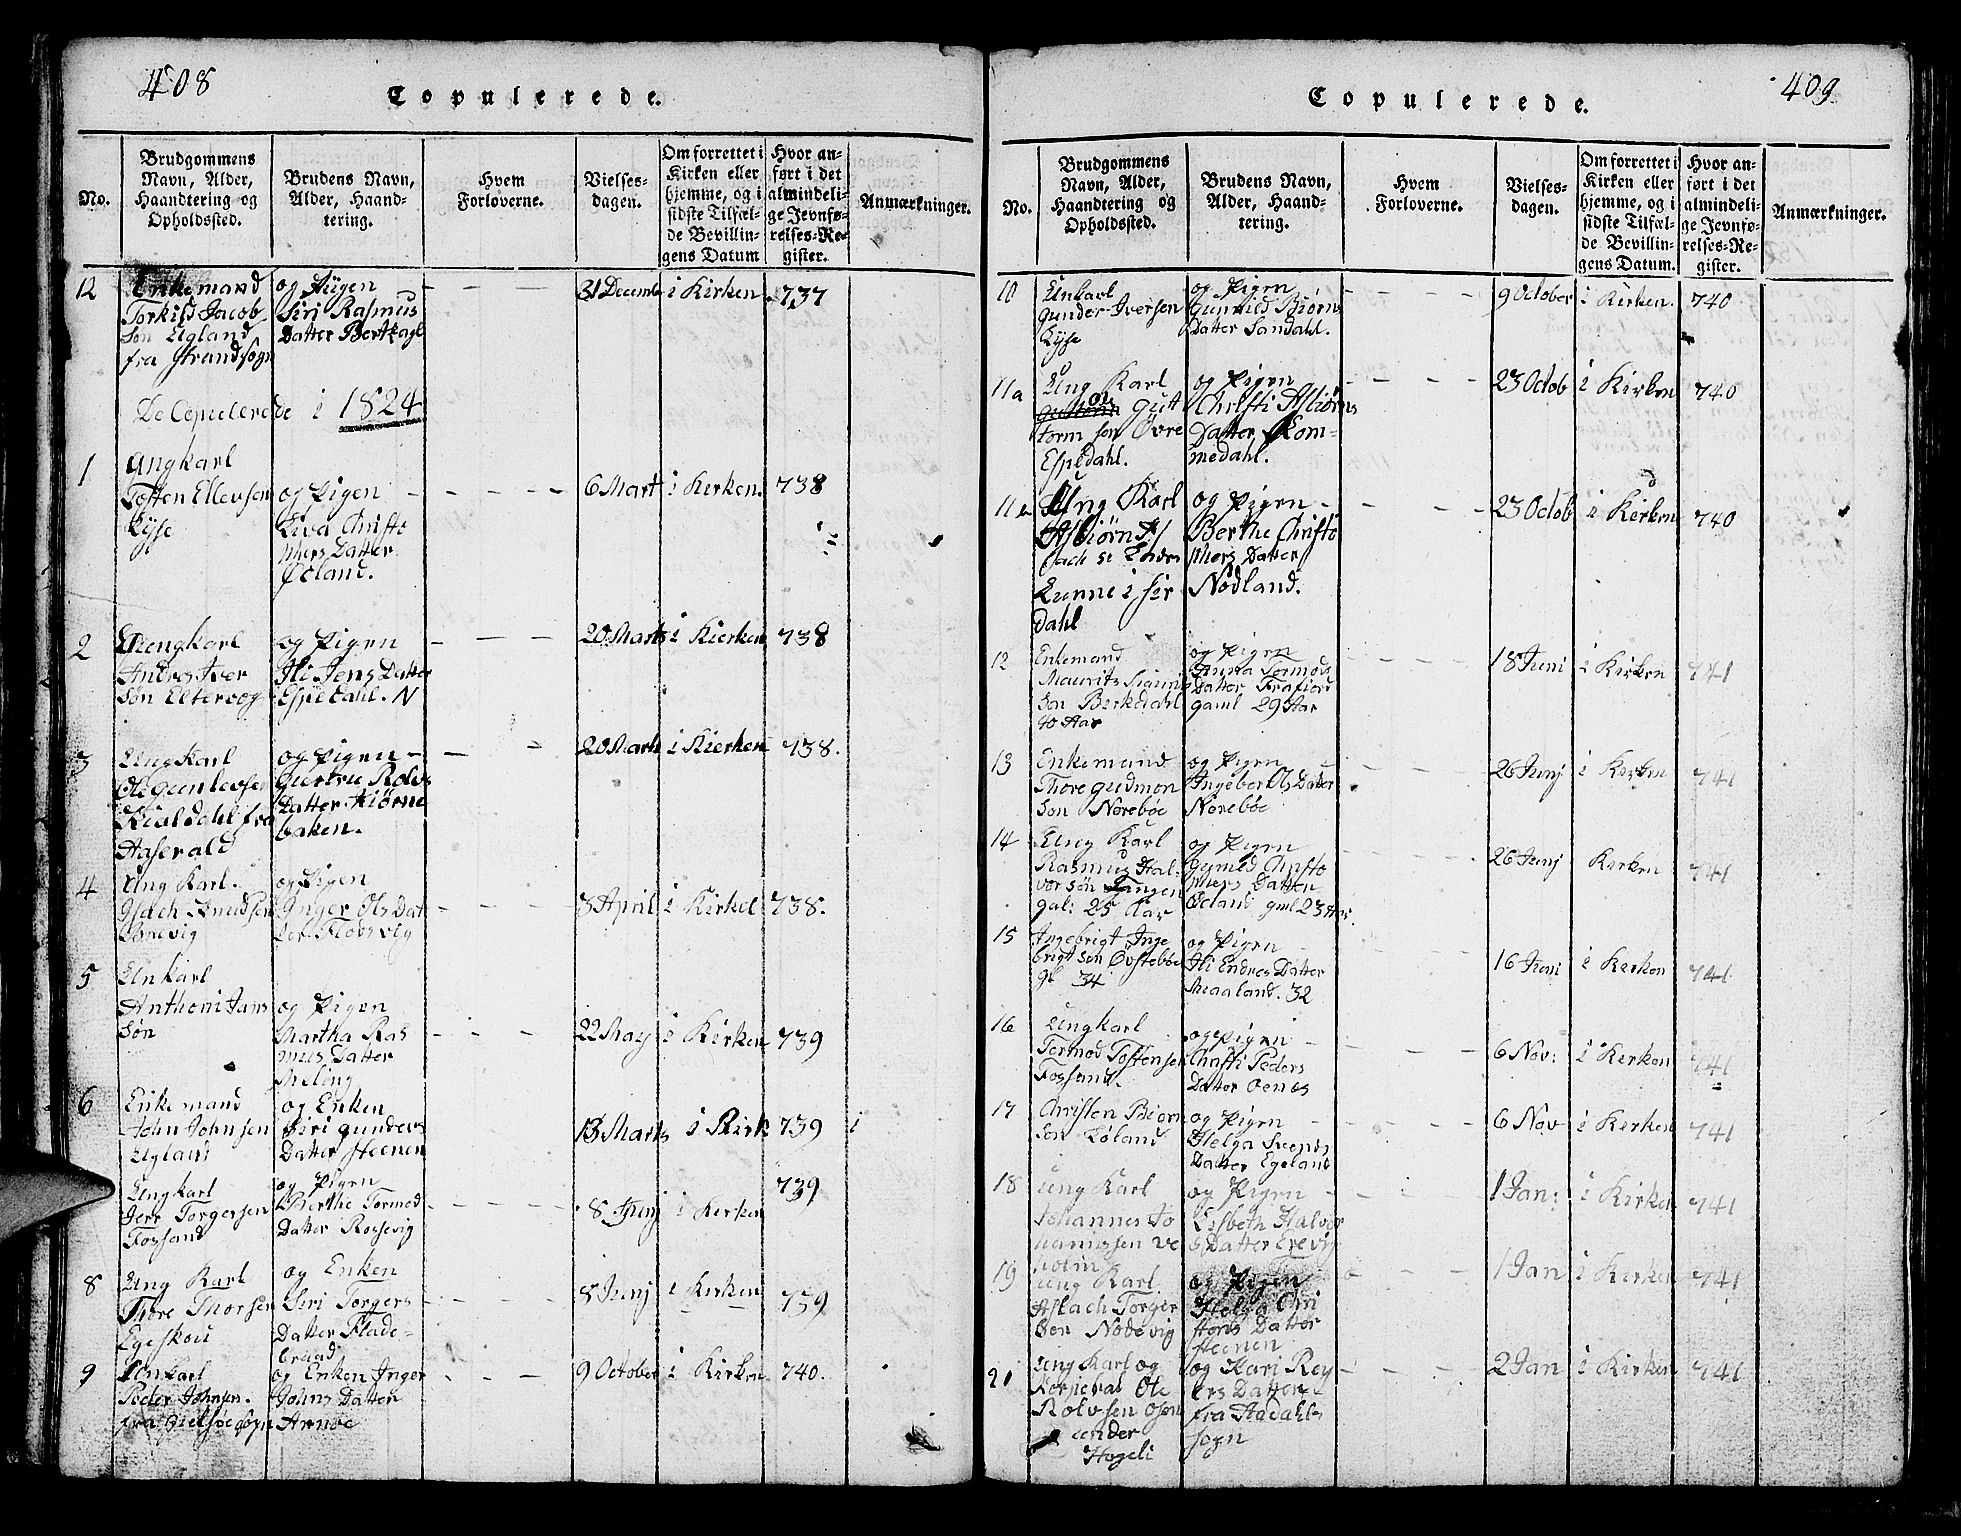 408
Copulerede.
No.
Brudgommens
Navn, Alder,
Haandtering og
Opholdssted.
Brudens Navn,
Alder, Haand-
tering.
Hvem
Forloverne.
Vielses-
dagen.
Om forrettet i
Kirken eller
hjemme, og i
sidste Tilfæl-
de Bevillin-
gens Datum
Hvor an-
ført i det
almindeli-
ge Jevnfø-
relses-Re-
gister.
Anmærkninger.
12
Enkemand
Torkild Jacob
Søn Ugland
fra Strandsogn
og Pigen
Siri Rasmus
Datter
31 Decemb
i Kirken
737
De Copulerede i 1824
1
Ungkarl
Tosten Ellevsen
Lyse
og Pigen
Liva Christo
phers Datter
Øeland.
6 Mart
i Kirken.
738
2
Ungkarl
Andres Iver
Søn Eltervog
og Pigen
Ili Jens Datter
Espedahl. N
20 Marts
i Kierken
738
3
Ung Karl
Ole Gunlevsen
Kialdahl fra
Aaserald
og Pigen
Giertrue Rolvs
Datter Kiørne
baken.
20 Marts
i Kierken
738.
4
Ung Karl.
Aslach Knudsen
og Pigen
Inger Ols Dat
ter Flovsvig
3 April
i Kirke
738.
5
Unkarl
Anthoni Jans
Søn
og Pigen
Martha Ras
mus Datter
Meling
22 May
i Kirken
739
6
Enkemand
John Johnsen
Ugland
og Enken
Siri Gunders
Datter Steenen
13 Marts
i Kirk
739
Ungkarl
Torgersen
Fossand
og Pigen
Berthe Tormod
Datter Rossevig
8 Junj
i Kerken
739
8
Ung Karl
Thore Thorsen
Egeskou
og Enken
Siri Torgers
Datter Flade-
braad
8 Junj
i Kerken
739
9
Unkarl
Peder Johnsen
fra sogn
og Enken Inger
Johns Datter
Arnøe
9 October
i Kirken
740.
409
Copulerede.
No.
Brudgommens
Navn, Alder,
Haandtering og
Opholdssted.
Brudens Navn,
Alder, Haand-
tering.
Hvem
Forloverne.
Vielses-
dagen.
Om forrettet i
Kirken eller
hjemme, og i
sidste Tilfæl-
de Bevillin-
gens Datum.
Hvor an-
ført i det
almindeli-
ge Jevnfø-
relses-Re-
gister.
Anmærkninger.
10
Unkarl
Gunder Iversen
Lyse
og Pigen
Gunnild Biørns
Datter Sandahl.
9 October
i Kirken.
740
11a
Ung Karl
Ole Gutt
torm søn Øvre
Espedahl.
og Pigen
Christi Asbiørns
Datter Kom-
medahl.
23 Octob
i Kirken
740
Ung Karl
Asbiørn
Lunne i Sir
dahl
og Pigen
Berthe Christo
phers Datter
Nødland.
23 Octob
i Kirken
740
12
Enkemand
Maurits
Søn Berkedahl
40 Aar
og Pigen
Anna Tormods
Datter Frafiord
gaml 29 Aar
18 Juni
i Kirken
741
13
Enkemand
Thore Gudmon
Søn Norebøe
og Pigen
Ingebor Ols Datter
Norebøe
26 Junj
i Kirken
741
14
Ung Karl
Rasmus Hal-
vor søn Tengen
gal: 25 Aar
og Pigen
Gunild Christo
phers Datter
Øeland gml 23 Aar
26 Junj
Kirken
741
15
Ingebrigt Inge
brigt søn Øvstebbø
gl 34
og Pigen
Ili Endres Datter
Meaaland. 32
16 Juni
i Kerken
741
16
Ungkarl
Tormod Tostensen
Fossand.
og Pigen
Christi Peders
Datter Oenes
6 Nov:
i Kerken
741
17
Christen Biørn
søn Løland
og Pigen
Helga Svends
Datter Egeland
6 Nov
i Kirken
741
18
Ung Karl
Johannes Jo
hannessen Ve
holm
og Pigen
Lisbeth Halvor
s Datter Erevig
1 Jan:
i Kirken
741
19
Ung Karl
Aslach Torger
Søn Nodevig
og Pigen
Helga Chri
stens Datter
Steenen
1 Jan
i Kerken
741
Ung Karl og
Ole
Rolvsen Osen
under
Hogeli
og Kari Rey
ers Datter
fra Aadahls
sogn
2 Jan
i Kirken
741